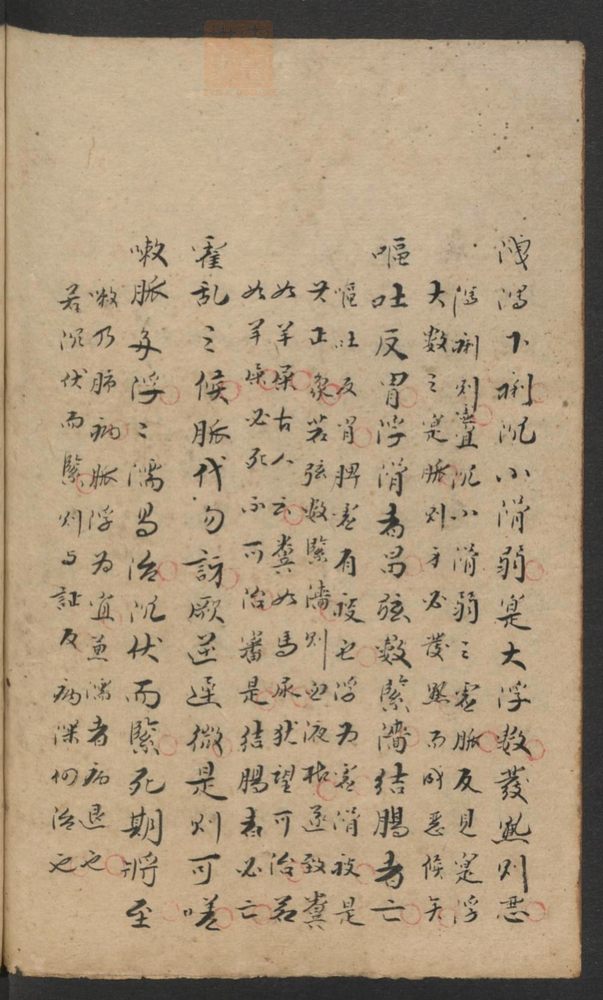 洩瀉下痢沉小滑弱寔大浮数發熱則惡
瀉痢則虚沉小滑弱之虚脉反見寔浮
大数之寔脉則身必發熱而成惡候矣
嘔吐反胃浮滑者昌弦數緊濇結腸者亡
嘔吐反胃脾虚有痰也浮为虚滑痰是
其正象若弦数緊濇則血液枯遂致糞
如羊屎古人云糞如馬尿犹望可治若
如羊屎必死不可治審是結腸者必亡
霍乱之候脉代勿訝厥逆遲微是則可嗟
嗽脉多浮〻濡易治沉伏而緊死期將至
嗽乃肺病脉浮为宜兼濡者病退也
若沉伏而緊則与証反病深何治也